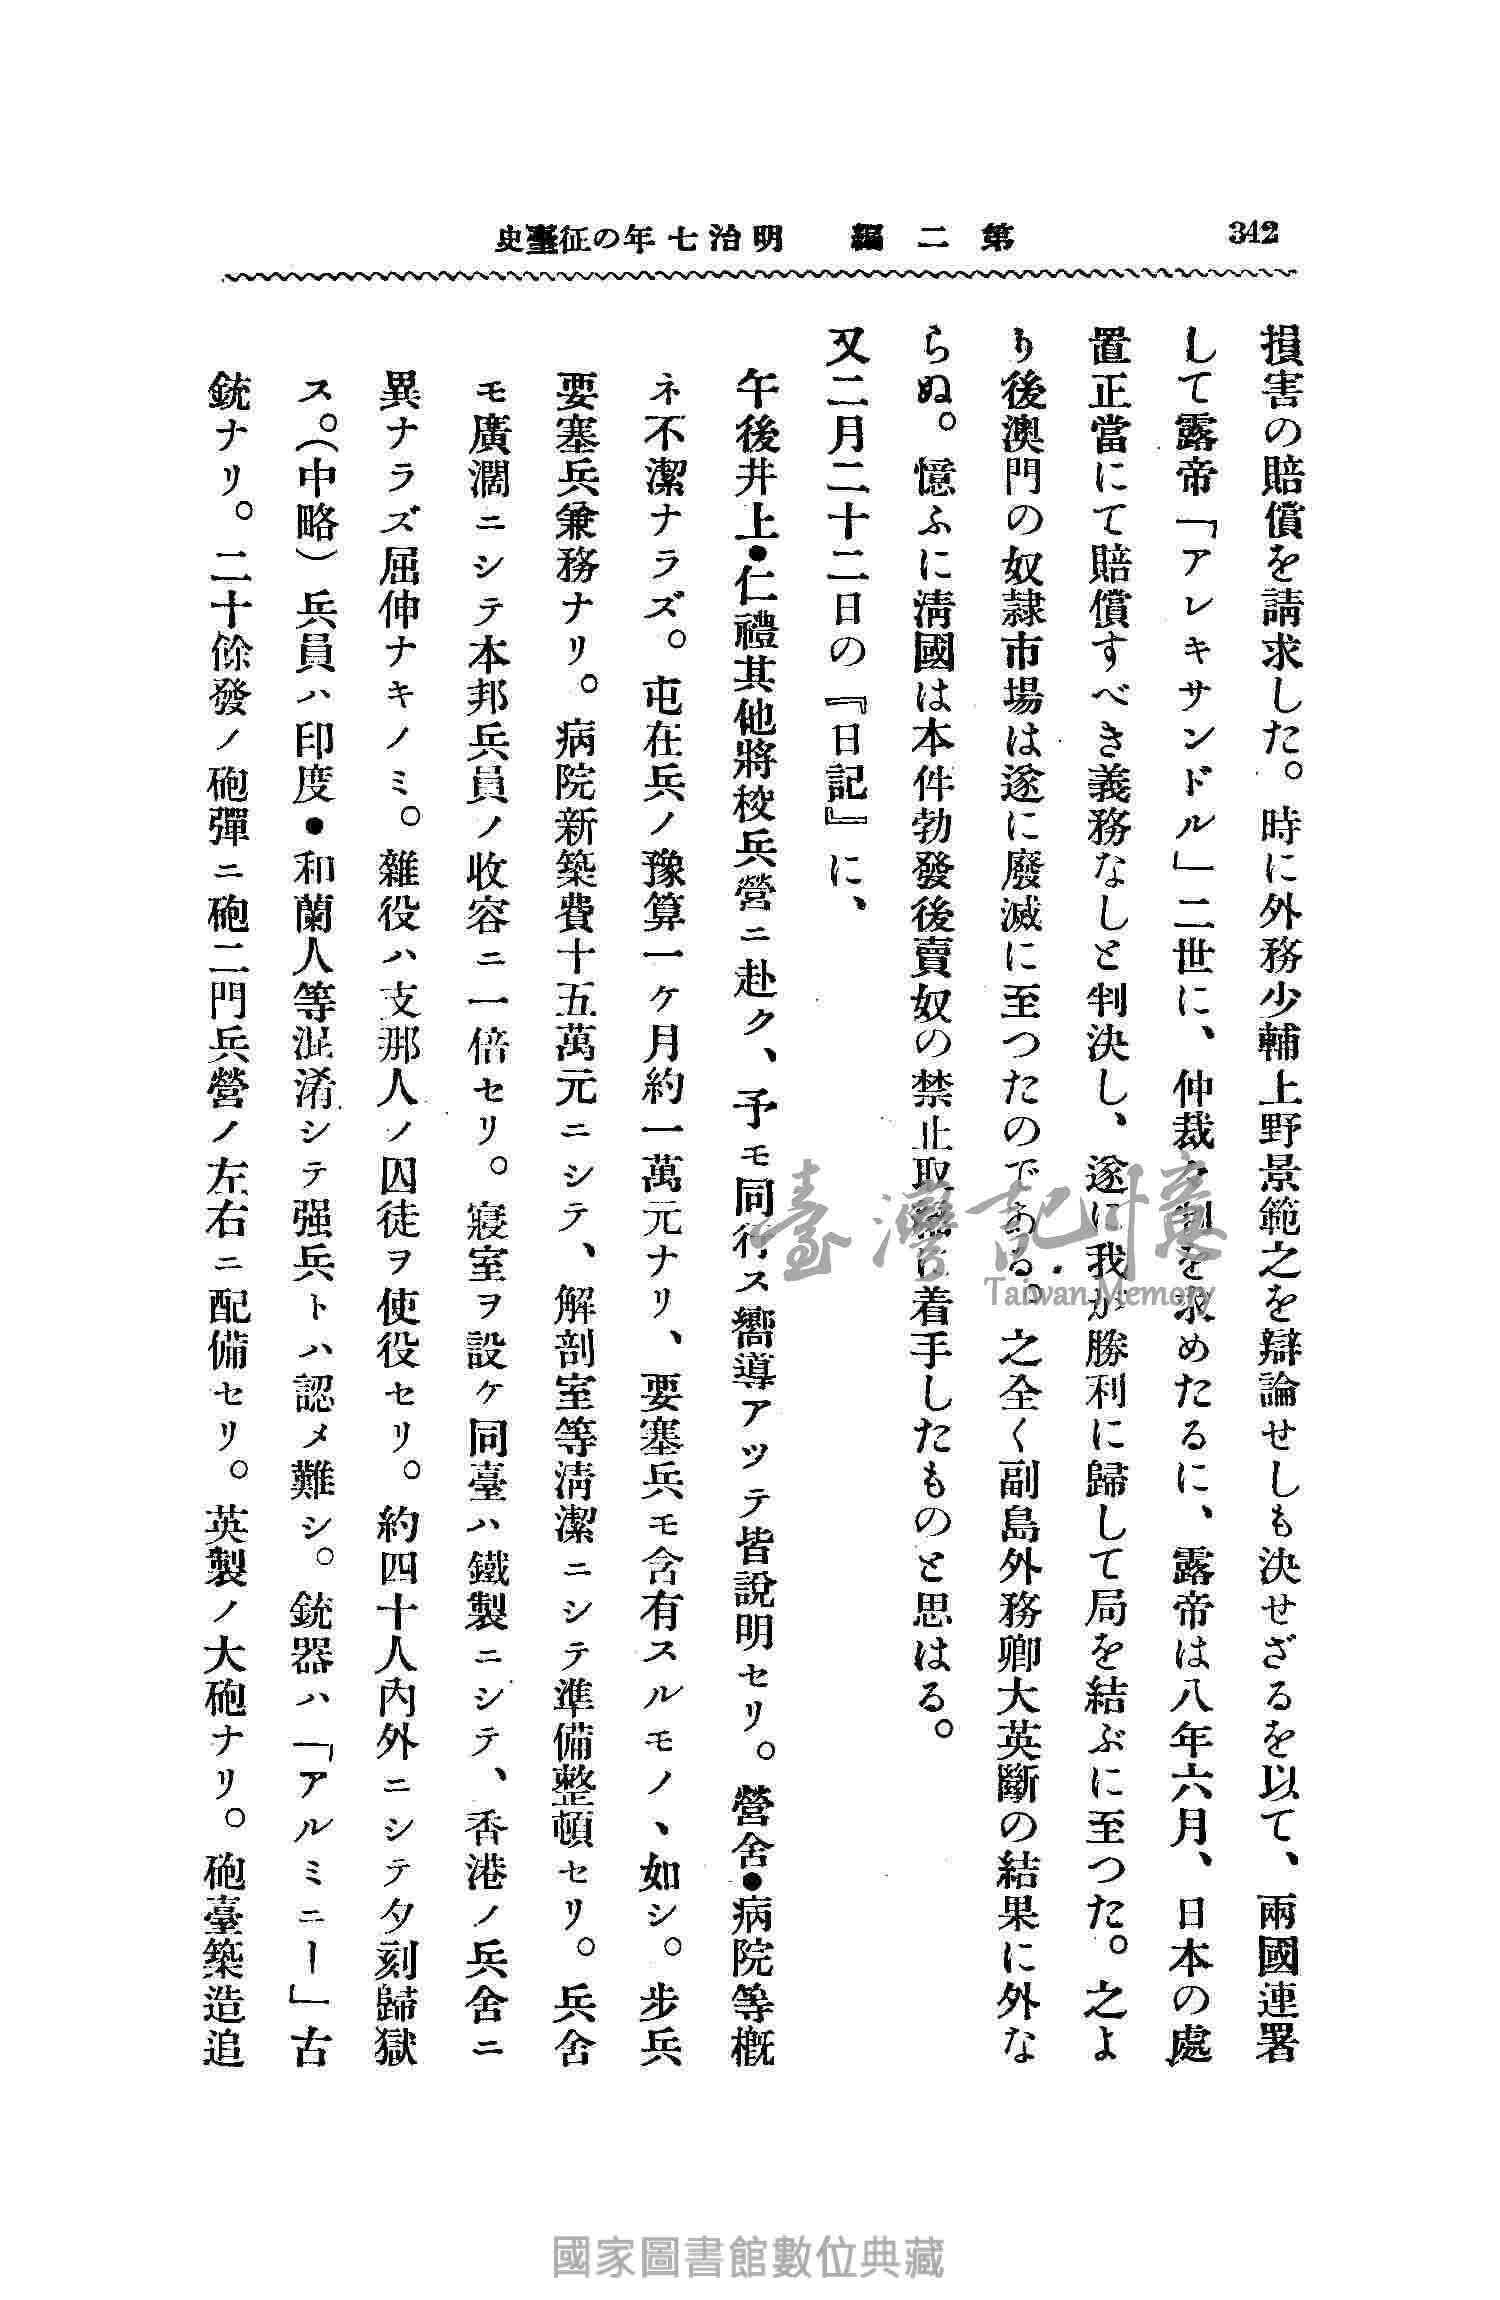 342
第二編　明治七年の征臺史
損害の賠償を請求した。時に外務少輔上野景範之を辯論せしも決せざるを以て、兩國連署
して露帝「アレキサンドル」二世に、仲裁々判を求めたるに、露帝は八年六月、日本の處
置正當にて賠償すべき義務なしと判決し、遂に我が勝利に歸して局を結ぶに至つた。之よ
り後澳門の奴隷市場は遂に廢滅に至つたのである。之全く副島外務卿大英斷の結果に外な
らぬ。憶ふに淸國は本件勃發後賣奴の禁止取締に着手したものと思はる。
又二月二十二日の『日記』に、
午後井上●仁禮其他將校兵營ニ赴ク、予モ同行ス嚮導アッテ皆說明セリ。營舍●病院等槪
ネ不潔ナラズ。屯在兵ノ豫算一ヶ月約一萬元ナリ、要塞兵モ含有スルモノヽ如シ。步兵
要塞兵兼務ナリ。病院新築費十五萬元ニシテ、解剖室等淸潔ニシテ準備整頓セリ。兵舍
モ廣濶ニシテ本邦兵員ノ收容ニ一倍セリ。寢室ヲ設ケ同臺ハ鐵製ニシテ、香港ノ兵舍ニ
異ナラズ屈伸ナキノミ。雜役ハ支那人ノ囚徒ヲ使役セリ。約四十人內外ニシテ夕刻歸獄
ス。（中略）兵員ハ印度●和蘭人等混淆シテ强兵トハ認メ難シ。銃器ハ「アルミニー」古
銃ナリ。二十餘發ノ砲彈ニ砲二門兵營ノ左右ニ配備セリ。英製ノ大砲ナリ。砲臺築造追
臺灣記憶
Taiwan Memory
國家圖書館數位典藏